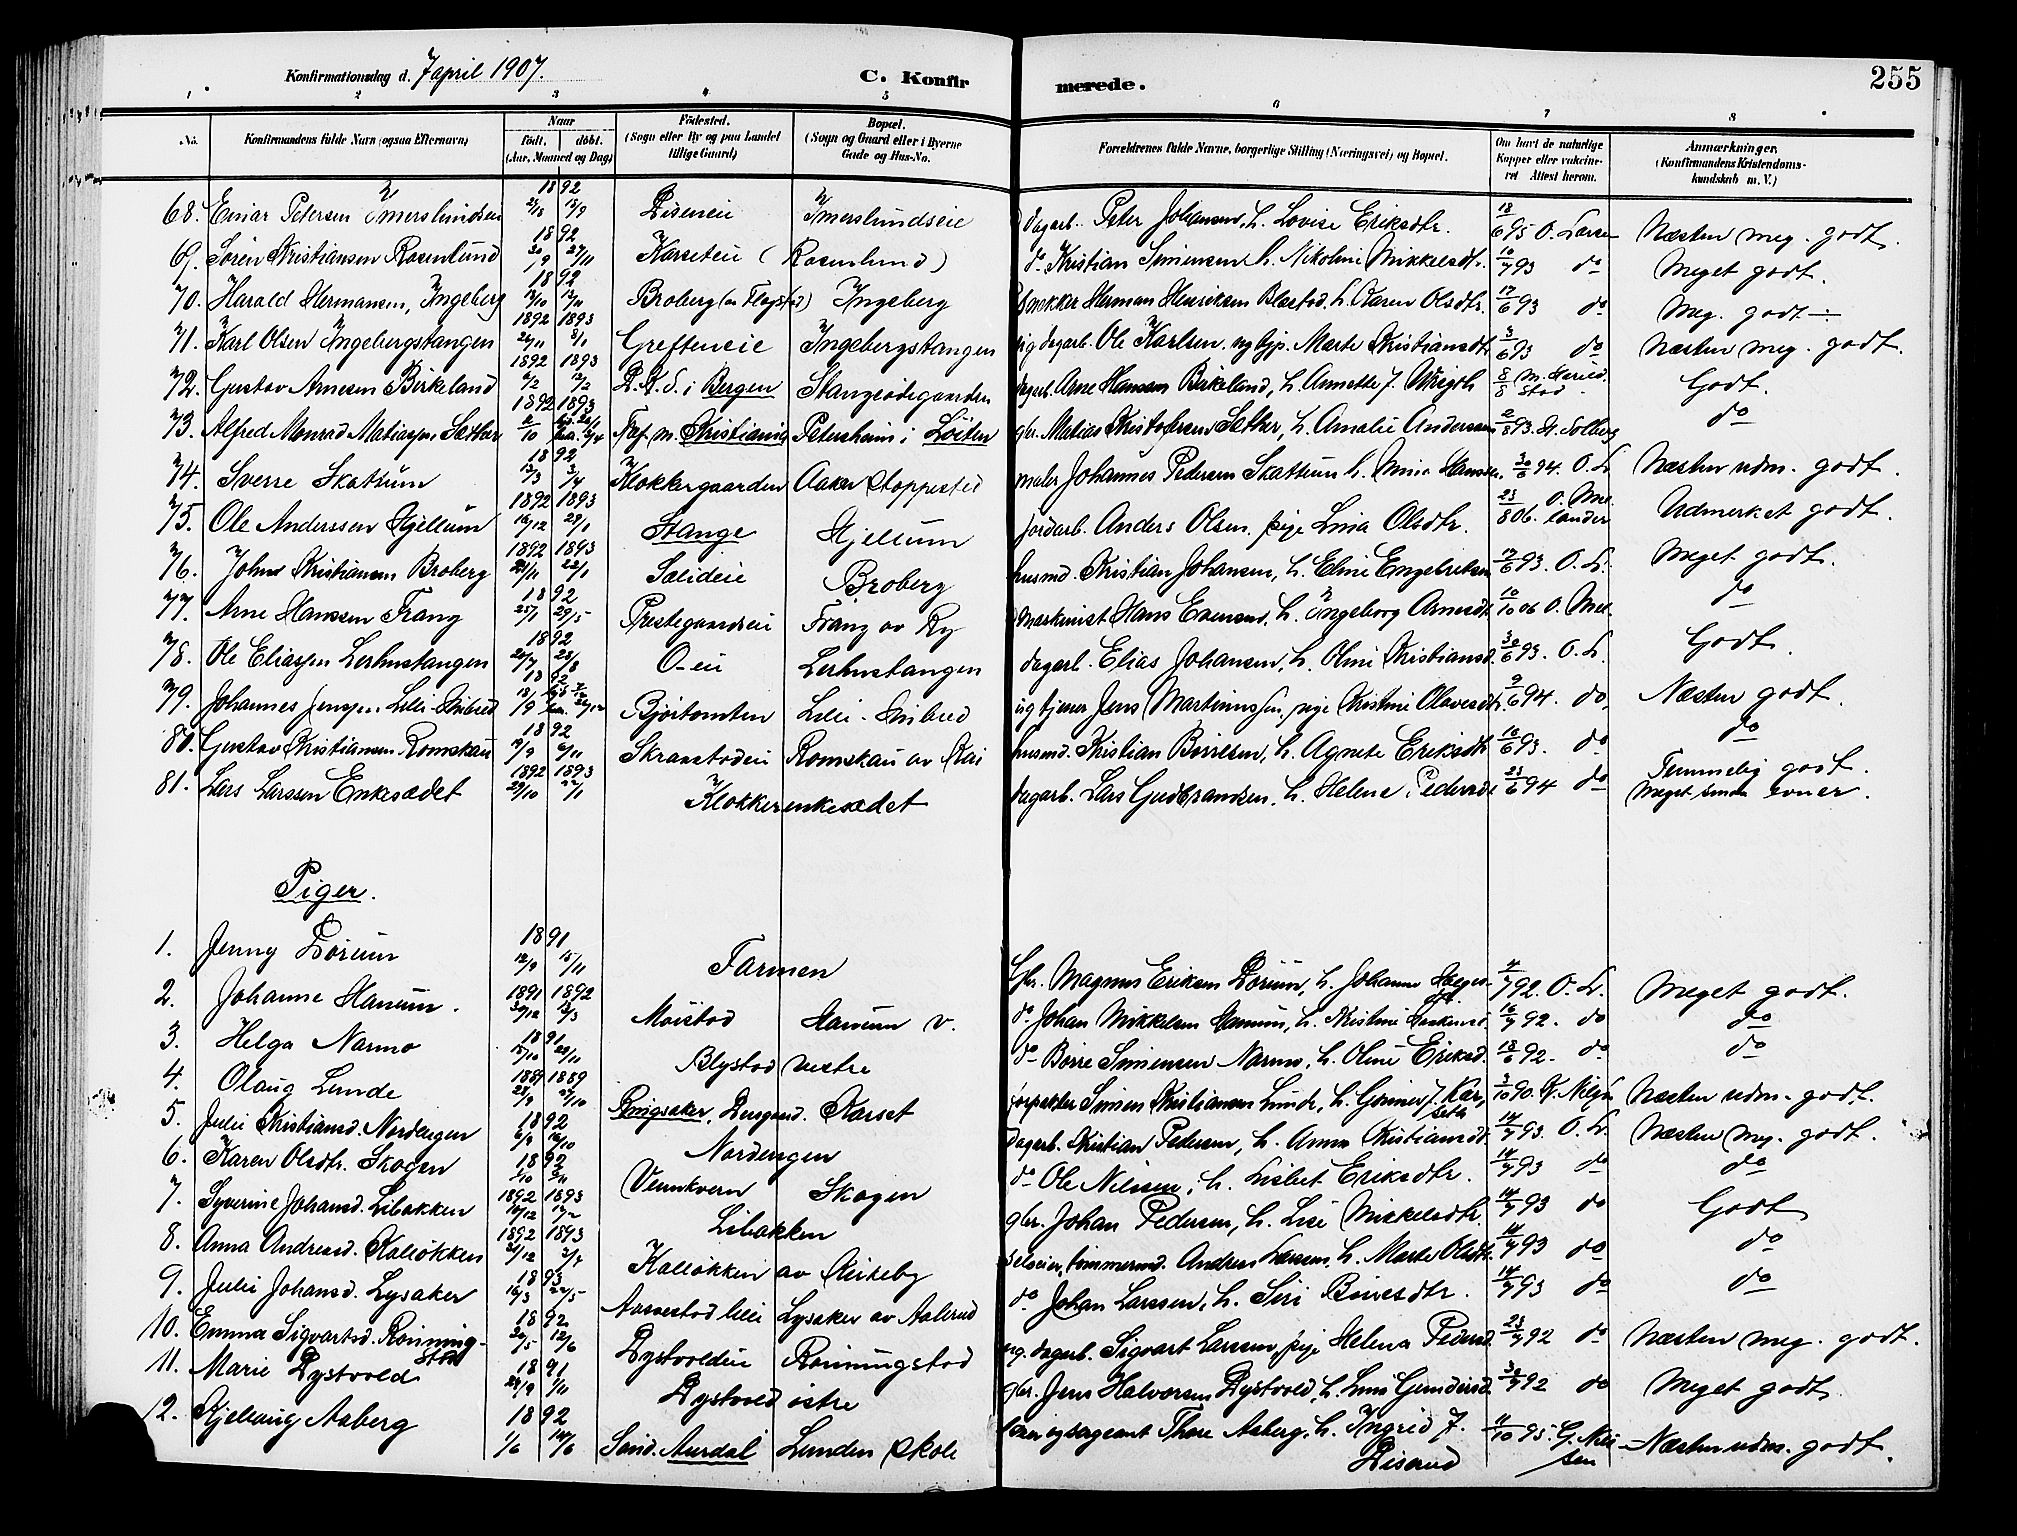 Konfirmationsdag d. 7 april 1907. C. Konfirmerede. 255
1 2 3 4 5 6 7 8
No. Konfirmandens fulde Navn (ogsaa Efternavn) Naar født, døbt. (Aar, Maaned og Dag) Fødested. (Sogn eller By og paa Landet tillige Gaard) Bopæl. (Sogn og Gaard eller i Byerne Gade og Hus-No. Forældrenes fulde Navne, borgerlige Stilling (Næringsvei) og Bopæl. Om havt de naturlige Kopper eller vaccineret Attest herom. Anmærkninger, (Konfirmandens Kristendomskundskab m. V.)
68. Einar Petersen Imerslundseie 1892 Diseneie Imerslundseie dagarb. Peter Johansen, h. Lovise Eriksdtr. 18/6 95 O. Næsten meg. godt.
69. Søren Kristiansen Rosenlund 1892 20/9 27/11 Karseteie (Rosenlund) do Kristian Simensen h. Nikoline Mikkelsdtr. 10/7 93 do Meget godt.
70. Harald Hermansen, Ingeberg 1892 Broberg Ingeberg Herman Henriksen h. Karen Olsdtr. 17/6 93 do Meg. godt
71. Karl Olsen Ingebergstangen 1892 1893 26/11 8/1 Grefteneie Ingebergstangen ug dagarb. Ole Karlsen. og Marte Kristiansdtr 3/6 93 do Næsten meg. godt.
72. Gustav Arnesen Birkeland 1892 1893 12/2 i Bergen Stangeodegaarden dagarb. Arne Hansen Birkeland, h. Annette J. 8/8 Godt.
73. Alfred Monrad Matiassen Sæther 1892 1893 2/10 Kristiania Petersheim i Løiten gbr. Matias Kristofersen Sæther, h. Amalie Anderssen 2/8 93 do
74. Sverre Skattum 1892 13/3 3/4 Klokkergaarden Aaker Stoppested maler Johannes Pedersen Skattum h. Mina Hanssen 30/6 94. O. L. Næsten udm. godt.
75. Ole Anderssen Hjellum 1892 1893 16/12 29/1 Stange Hjellum jordarb. Anders Olsen, pige Lina Olsdtr. 23/8 06. O. Melander Udmerket godt.
76. Johns Kristiansen Broberg 1892 1893 22/1 Sælideie Broberg husmd. Kristian Johansen, h. Eline Engebretsen 17/6 93. O. L. Meget godt.
77. Arne Hanssen Frang 1892 25/1 29/5 Prestegaardseie Frang av Ry maskinist Hans Evensen, h. Ingeborg Arnesdtr 10/10 06 O. Mel do
78. Ole Eliassen Lerhustangen 1892 24/7 28/8 O-eie Lerhustangen dagarb. Elias Johansen, h. Oline Kristiansd. 30/6 93. O. L. Godt.
79. Johannes Jenssen Lille-Imbred 1892 18/9 Bjøitomten Lille-Imbred ug tjener Jens Martinussen, pige Kristine Olavesdtr. 9/6 94. do Næsten godt.
80. Gustav Kristiansen Romskau 1892 6/11 Skramstadeie Romskau av Kai husmd. Kristian Børresen, h. Agnete Eriksdtr 16/6 93. do do
81. Lars Larssen Enkesædet 1892 1893 29/10 22/1 Klokkerenkesædet dagarb. Lars Gudbrandsen, h. Helene Pedersdtr 23/6 94 do Temmelig godt. Meget smaa evner.
Piger.
1. Jenny Dørum 1891 12/9 15/11 Farmen Gbr. Magnus Eriksen Dørum, h. Johanne 4/7 92. O. L. Meget godt.
2. Johanne Hanum. 1891 1892 30/12 13/3 Møistad Hanum v. do Johan Mikkelsen Hanum, h. Kristine 16/7 92. do do
3. Helga Narmo 1891 15/10 29/11 Blystad vestre do Børre Simensen Narmo, h. Oline Eriksd. 18/6 92. do do
4. Olaug Lunde 1889 1889 23/9 27/10 Ringsaker, Karset forpakter Simen Kristiansen Lunde, h. Gunner J. Karseth 3/10 90. Næsten udm. godt.
5. Julie Kristiansd. Nordengen 1892 6/9 16/10 Nordengen dagarb. Kristian Pedersen, h. Anna Kristiansdtr 14/7 93. O. L. Næsten meg. godt.
6. Karen Olsdtr. Skogen 1892 Vennkvern Skogen do Ole Nilssen, h. Lisbet Eriksdtr. 14/7 93 do do
7. Syverine Johansd. Libakken 1892 1893 Libakken gbr. Johan Pedersen, h. Lise Mikkelsdtr. 14/7 93 do Godt
8. Anna Andreasd. Kaliøkken 1892 1893 21/12 Kaliøkken av Kirkeby selveier, tømmermd. Andreas Larssen, h. Marte Olsdtr. 14/7 93 do do
9. Julie Johansd. Lysaker 1893 16/3 22/5 Aarestad lille Lysaker av Aalerud do Johan Larssen, h. Siri Børresdtr. 14/7 93 do do
10. Emma Sigvartsd. Rønningstad 1892 30/5 12/6 Dystvoldeie Rønningstad ug. dagarb. Sigvart Larssen, pige Helena Pedersd. 23/7 92 do Næsten meg. godt.
11. Marie Dystvold 1891 29/9 1/11 Dystvold østre gbr. Jens Halvorsen Dystvold, h. Lina Gundersd. 30/7 92 do Meget godt.
12. Kjellaug Aaberg 1892 1/6 14/6 Sand. Aurdal Lunden skole lærer og sergeant Thore Aaberg, h. Ingrid J. Diserud 11/10 95. G. Nilssen Næsten udm. godt.